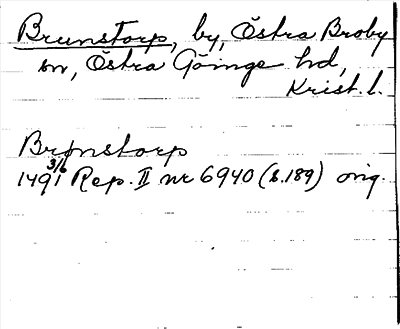 Brunstorp, by, Östra Broby
sn, Östra Göinge hd,
Krist. l.
Brønstorp
1491 3/6 Rep. II nr 6940 (s. 189) orig.